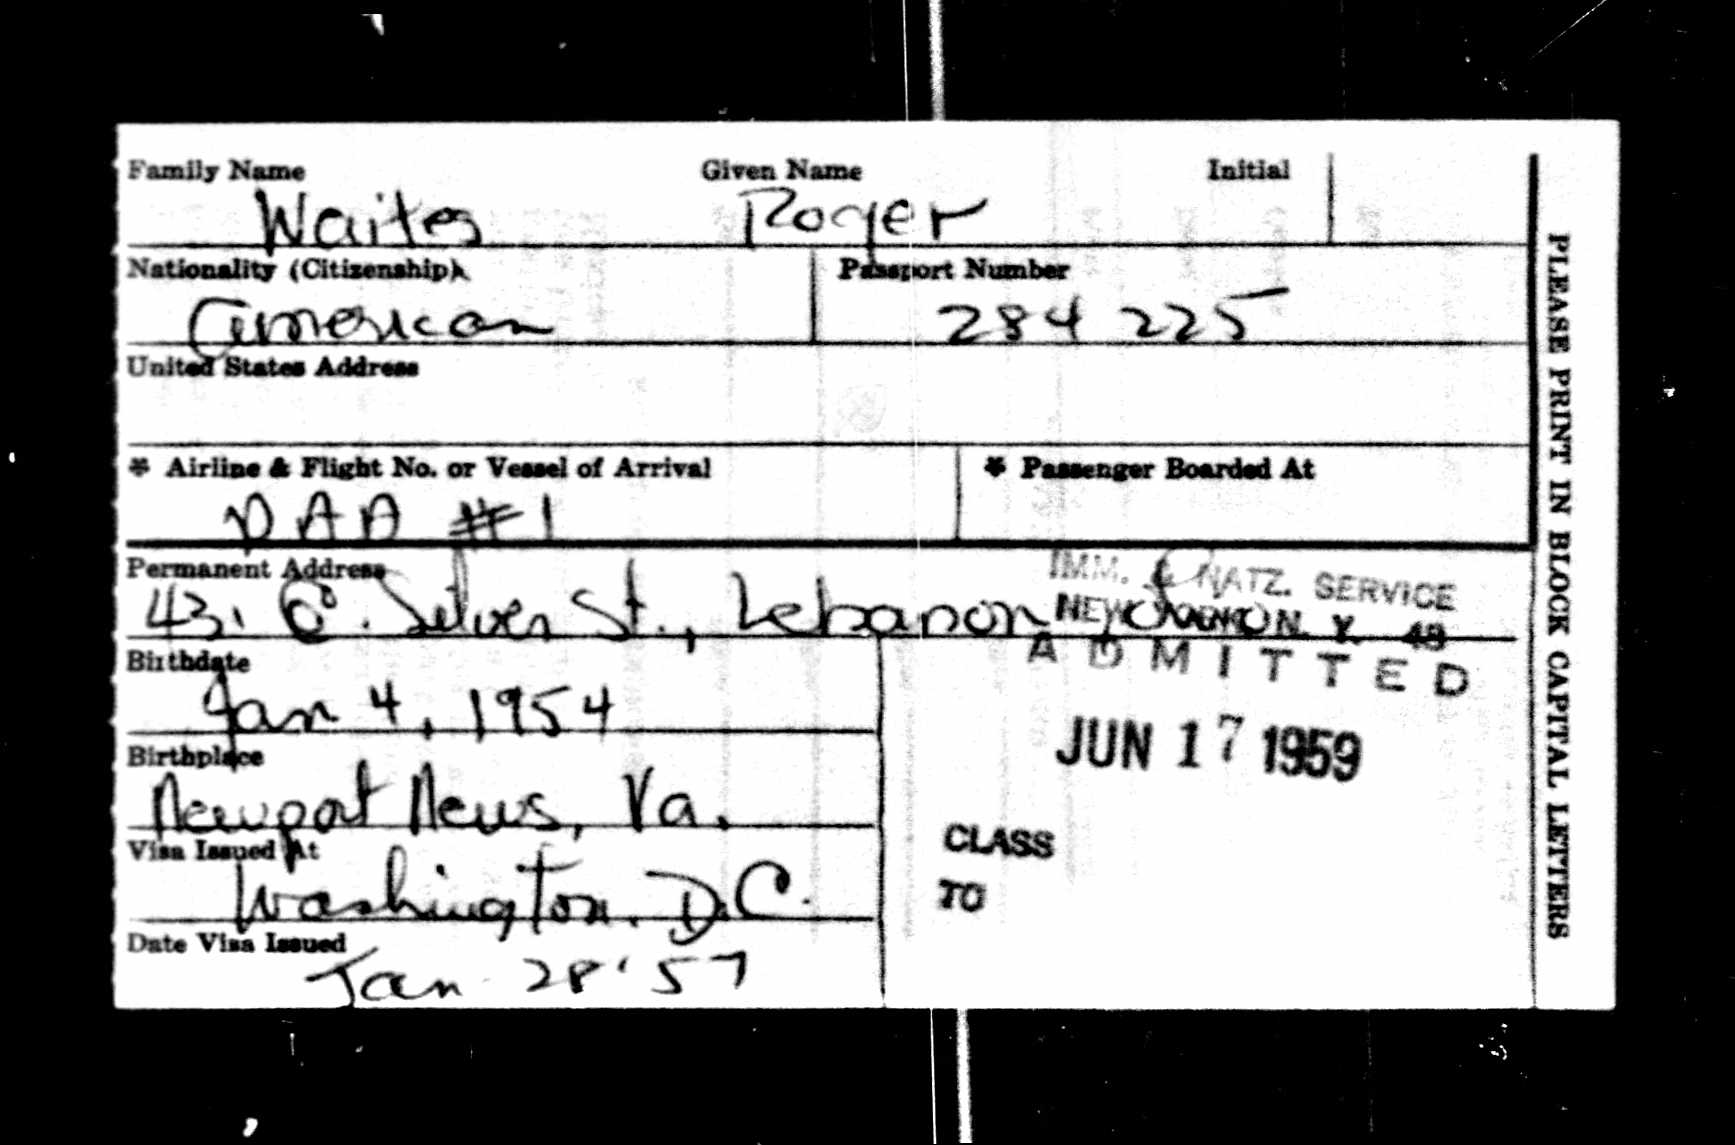 Family Name Given Name Initial
Waites Roger
Nationality (Citizenship) Passport Number
American 284 225
United States Address
* Airline & Flight No. or Vessel of Arrival * Passenger Boarded At
PAA #1
Permanent Address
IMM. & NATZ. SERVICE
43. E. Silver St., Lebanon
NEW YORK, N. Y. 48
ADMITTED
Birthdate
Jan 4, 1954
JUN 17 1959
Birthplace
Newport News, Va.
CLASS
Visa Issued At
Washington, D.C.
TO
Date Visa Issued
Jan 28 '57
PLEASE PRINT IN BLOCK CAPITAL LETTERS